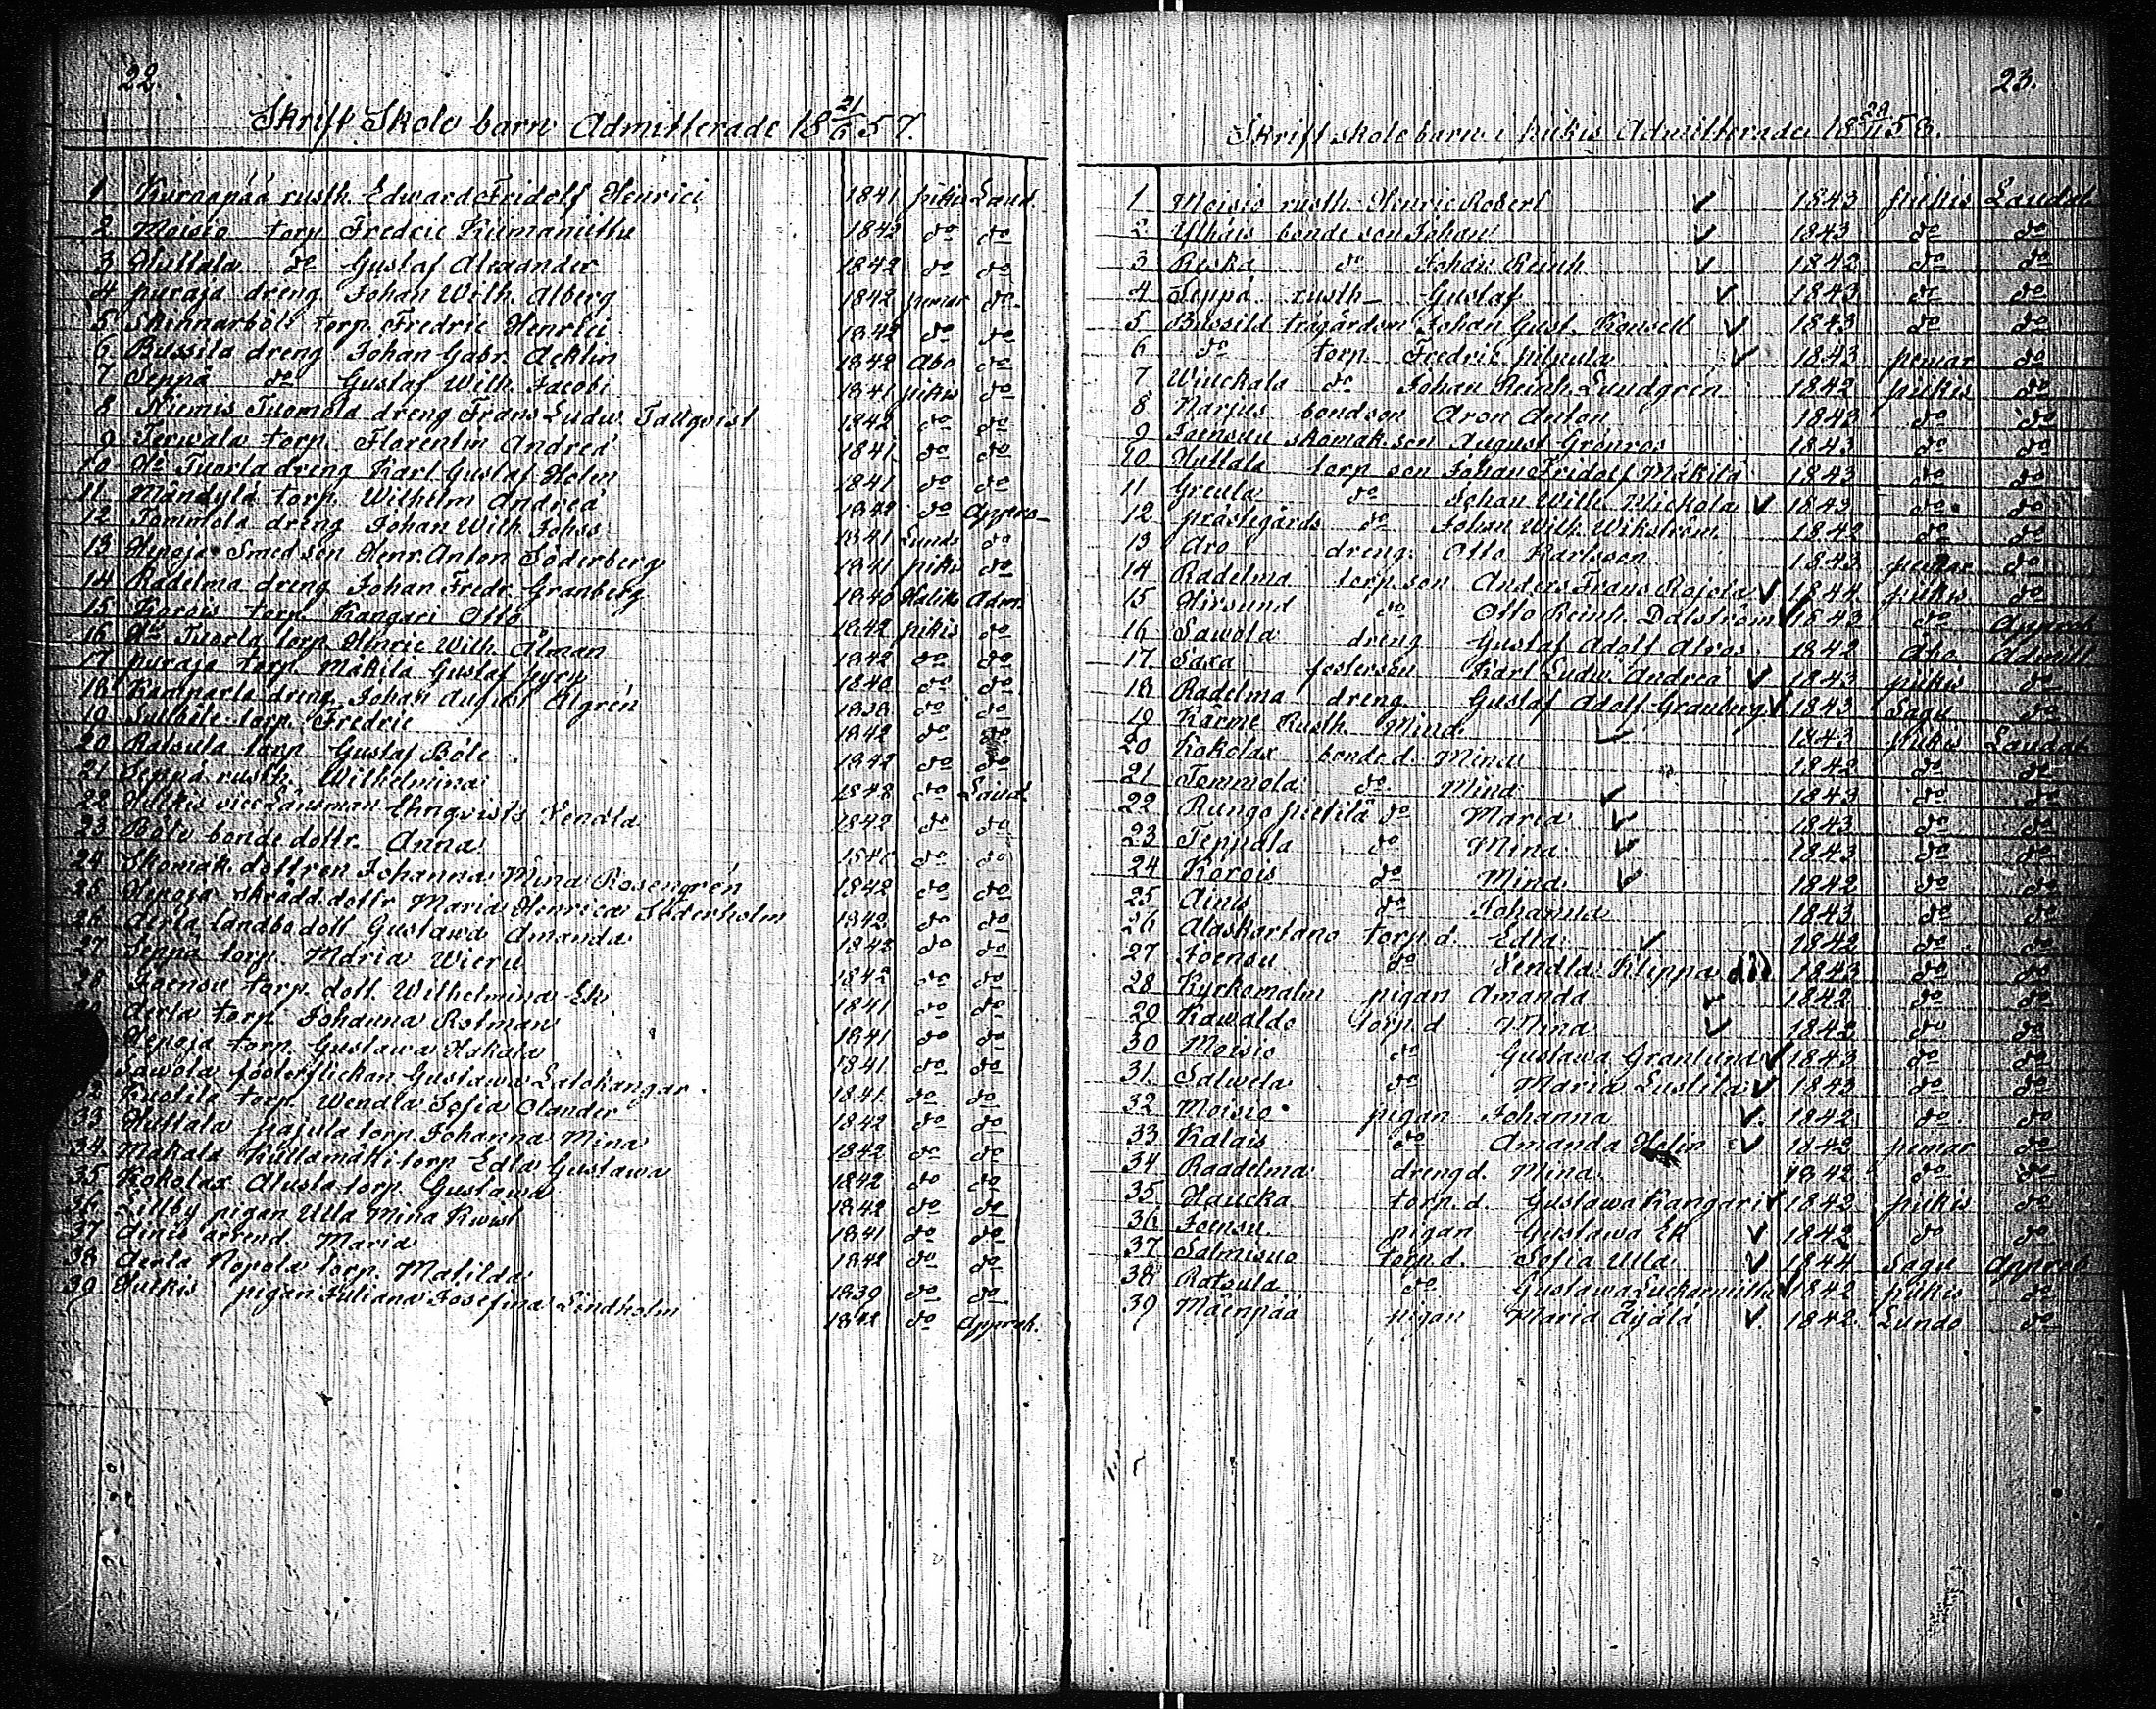 22.
Skrift Skole barn Admitterade 18 21/6 57.
1 Kurnapää rusth. Edward Fridolf Henrici 1841 pikis Laud.
2 Moisio torp. Fredric Kiimaniittu 1842 do do
3 Huttala do Gustaf Alexander 1842 do do
4 puraja dreng Johan Wilh. Alberg 1842 pemar do
5 Skinnarböle torp. Fredric Henrici 1842 do do
6 Bussila dreng Johan Gabr. Acklin 1842 Åbo do
7 Seppä do Gustaf Wilh. Jacobi 1841 pikis do
8 Niemis Tuomola dreng Frans Ludw. Tallqvist 1842 do do
9 Terwala torp. Florentin Andreä 1841 do do
10 Tuorla dreng Karl Gustaf Helin 1841 do do
11 Mändylä torp. Wilhelm Andreä 1842 do Appro
12 Tommola dreng Johan Wilh. Johss 1841 Lundo do
13 Hepoja Smed son Henr. Anton Söderberg 1841 pikis do
14 Radelma dreng Johan Fredr. Granberg 1840 Halik Adm.
15 Korois torp. Kangari Otto 1842 pikis do
16 Tuorla torp. Henric Wilh. Ålman 1842 do do
17 puraja torp. Mäkilä Gustaf 1840 do do
18 Kamparla dreng Johan August Algrén 1838 do do
19 torp. Fredric 1842 do do
20 Ratsula torp. Gustaf Böle 1842 do do
21 Seppä rusth. Wilhelmina do Laud.
22 vice Länsman Ehnqvists Vendla 1842 do do
23 Böle bonde dottr. Anna do do
24 Skomak. dottren Johanna Mina Rosengrén 1842 do do
25 Hepoja skrädd. dottr Maria Henrica Söderholm 1842 do do
26 Aerla landbo dott Gustawa Amanda 1842 do do
27 Seppä torp. Maria Wieru 1842 do do
28 Joensu torp. dott. Wilhelmina Ek 1841 do do
Aerla torp Johanna Rotman 1841 do do
Hepoja torp Gustawa Hakala 1841 do do
Sawola fosterflickan Gustawa Salokangar 1841 do do
Kuotila torp. Wendla Sofia Olander 1842 do do
33 Huttala pajula torp. Johanna Mina 1842 do do
34 Makala Kultamäki torp Edla Gustawa 1842 do do
35 Kokolax Alusta torp. Gustawa 1842 do do
36 Lillby pigan Ulla Mina Kiwi 1841 do do
37 Maria 1842 do do
38 Aerla Nopola torp. Matilda 1839 do do
39 pigan Juliana Josefina Lindholm 1842 do Approb.
23.
Skriftskole barn i pikis Admitterade 18 58.
1 Moisio rusth. Henric Robert ✓ 1843 piikis Laudat.
2 Ylhäis bonde son Johan ✓ 1843 do do
3 Reska do Johan Reinh ✓ 1842 do do
4 Seppä rusth Gustaf ✓ 1843 do do
5 Bussila trägårdsm Johan Gust. ✓ 1843 do do
6 do torp. Fredrik pilpula ✓ 1843 pemar do
7 do Johan Reinh. Lundgren 1842 piikis do
8 Narjus bondson Aron Anton 1842 do do
9 Joensuu skomak. son August Grönros 1843 do do
10 Huttala torp son Johan Fridolf Mäkilä 1843 do do
11 Greula do Johan Wilh. Mickola ✓ 1843 do do
12 prästgårds do Johan Wilh. Wikström 1842 do do
13 Aro dreng Otto Karlsson 1843 pemar do
14 Radelma torp. son Anders Frans Rajola ✓ 1844 piikis do
15 Hirsund do Otto Reinh. Dalström ✓ 1842 do Approb
16 Sawola dreng Gustaf Adolf Alros 1842 Åbo Admitt
17 Saxa fosterson Karl Ludw. Andreä ✓ 1843 piikis do
18 Radelma dreng Gustaf Adolf Granberg ✓ 1843 Sagu do
19 Kärme Rusth. Mina ✓ 1843 piikis Laudat
20 Kokolax bonde d. Mina 1842 do do
21 Tommola do Mina ✓ 1843 do do
22 Rungo pietilä do Maria ✓ 1843 do do
23 Teppala do Mina ✓ 1843 do do
24 Korois do Mina ✓ 1842 do do
25 Ainis do Johanna 1843 do do
26 Alaskartano torp. d. Edla ✓ 1842 do do
27 Joensu do Vendla Kleppa 1843 do do
28 Kyrkomalm pigan Amanda ✓ 1842 do do
29 Kawaldo torp. d Mina ✓ 1842 do do
30 Moisio do Gustawa Granlund ✓ 1843 do do
31 Salwela do Maria Eustila ✓ 1843 do do
32 Moisio pigan Johanna ✓ 1842 do do
33 Kalais do Amanda Helin ✓ 1842 pemar do
34 Raadelma dreng d. Mina 1842 do do
35 Haucka torp. d. Gustawa Kangari ✓ 1842 piikis do
36 Joensu pigan Gustawa Ek ✓ 1842 do do
37 Salmisuo torp. d. Sofia Ulla ✓ 1844 Sagu Approb
38 Ratsula do Gustawa ✓ 1842 piikis do
39 Mäenpää pigan Maria Äijälä ✓ 1842 Lundo do